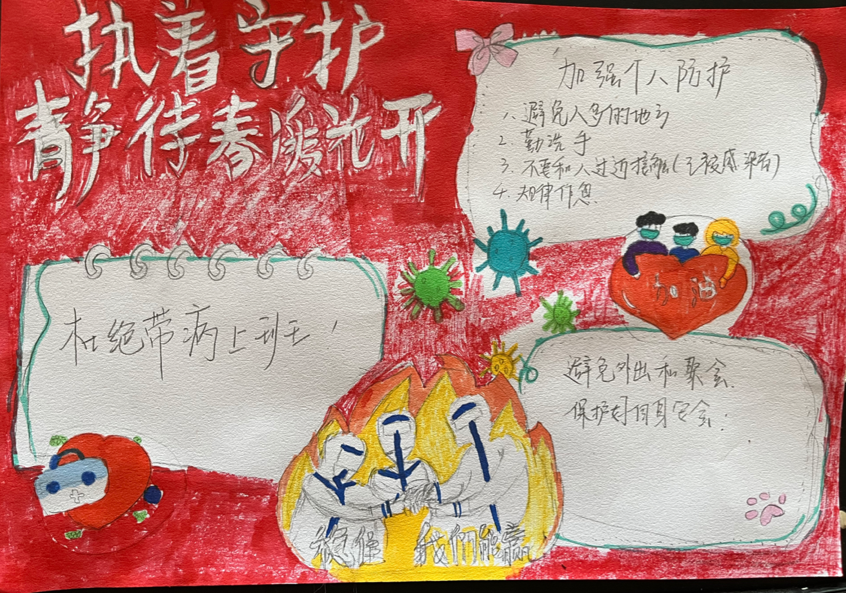 执着守护
静待春暖花开
加强个人防护
1. 避免人多的地方
2. 勤洗手
3. 不要和人过近接触(已被感染者)
4. 规律作息
加油
杜绝带病上班!
避免外出和聚会.
保护好自身安全.
稳住 我们能赢